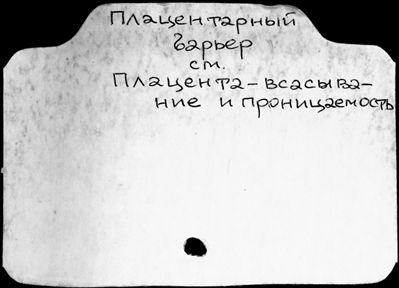 Плацентарный
барьер
см.
Плацента - всасыва-
ние и проницаемость